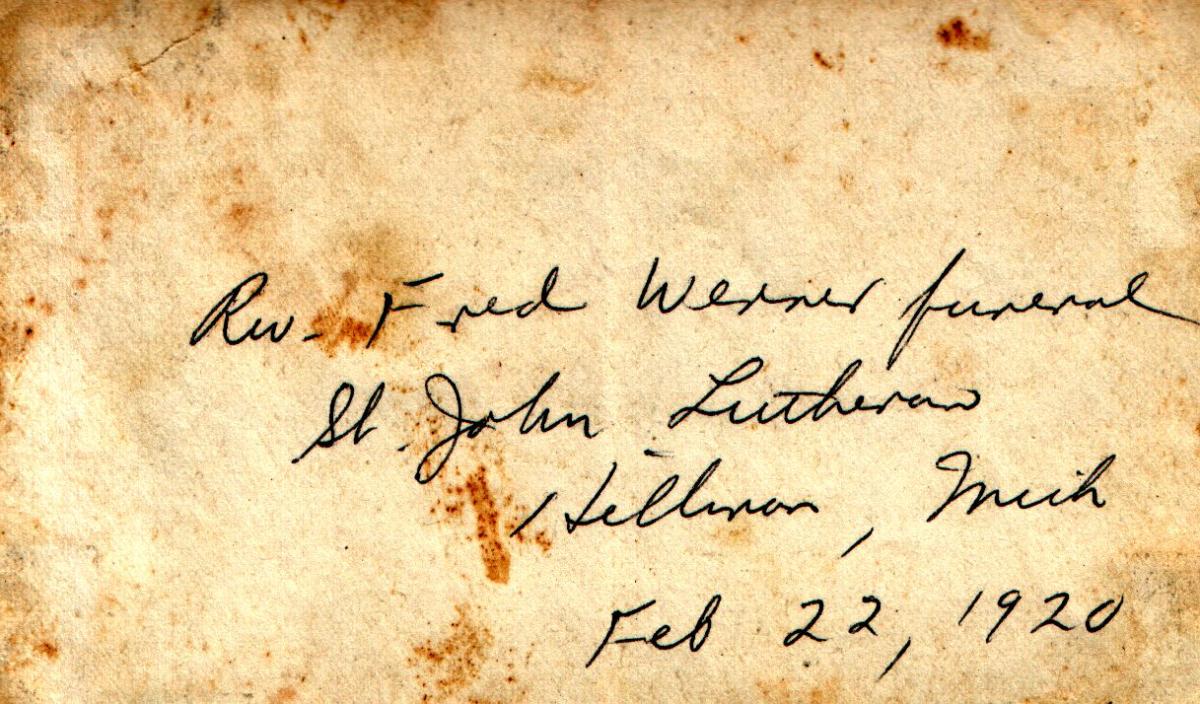 Rev. Fred Werner funeral
St. John Lutheran
Hillman, Mich
Feb 22, 1920